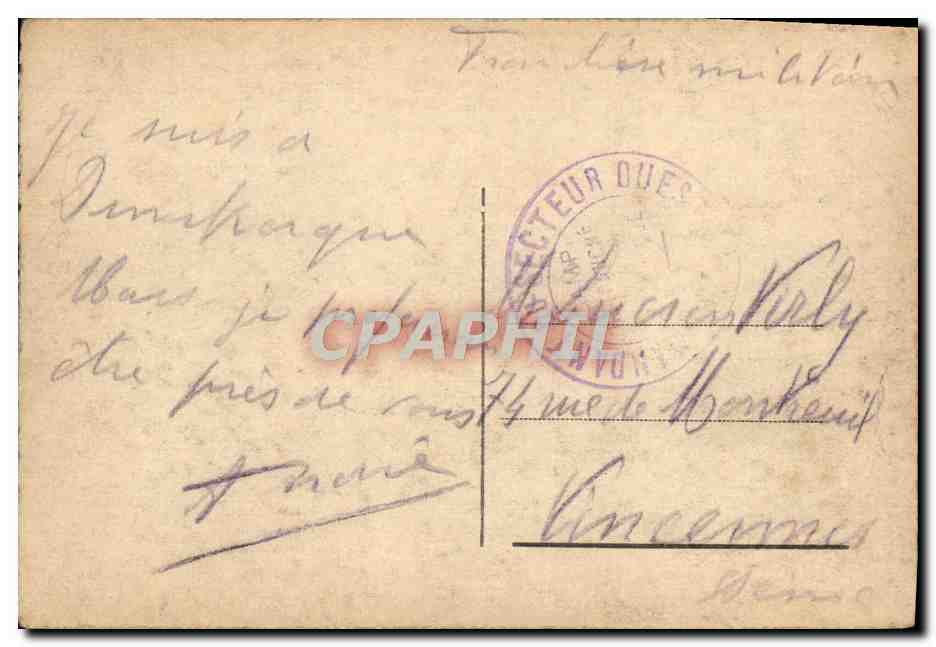 Franchise militaire
Je suis à
Dunkerque
Mais je
être près de vous
André
SECTEUR OUES
CPAPHIL
Lucien Virly
74 rue de Montreuil
Vincennes
Seine